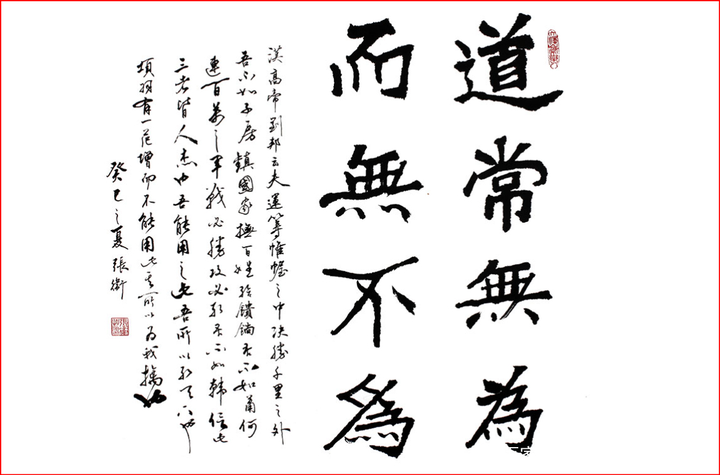 道常無為
而無不為
漢高帝劉邦云夫運筹帷幄之中决勝千里之外
吾不如子房鎮國家撫百姓给饋餉吾不如蕭何
連百萬之军戰必勝攻必取吾不如韩信此
三者皆人杰也吾能用之此吾所以取天下也
項羽有一范增而不能用此其所以为我擒也
癸巳之夏張衛